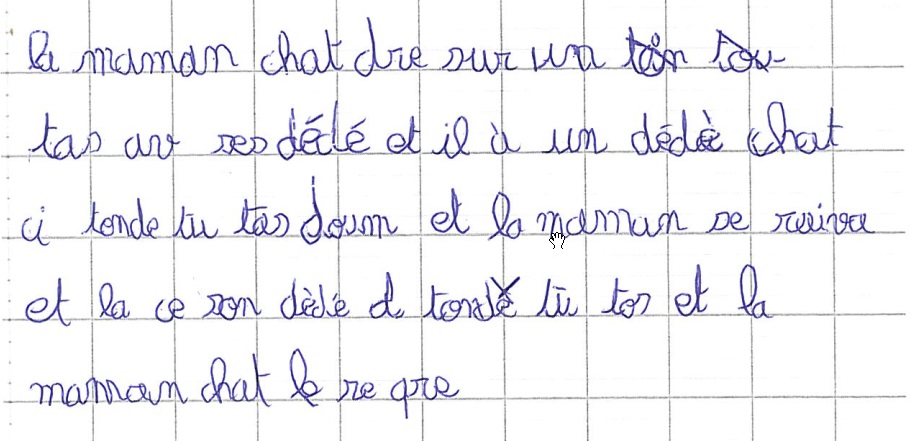 la maman chat dre sur un tou
tas av ses délé et il à un dédé chat
ci tonde tu tas doum et la maman se reivea
et la ce son dèlé d tondé tu tos et la
maman chat le re qre